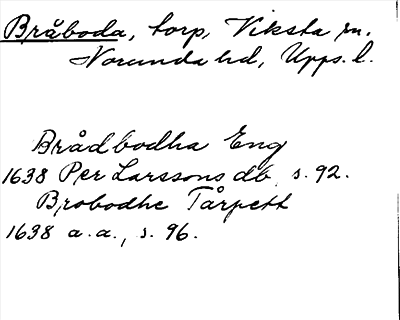 Bråboda, torp, Viksta sn.
Norunda hd, Upps. l.
Brådbodha Eng
1638 Per Larssons db s. 92.
Brobodhe Tårpett
1638 a.a., s. 96.